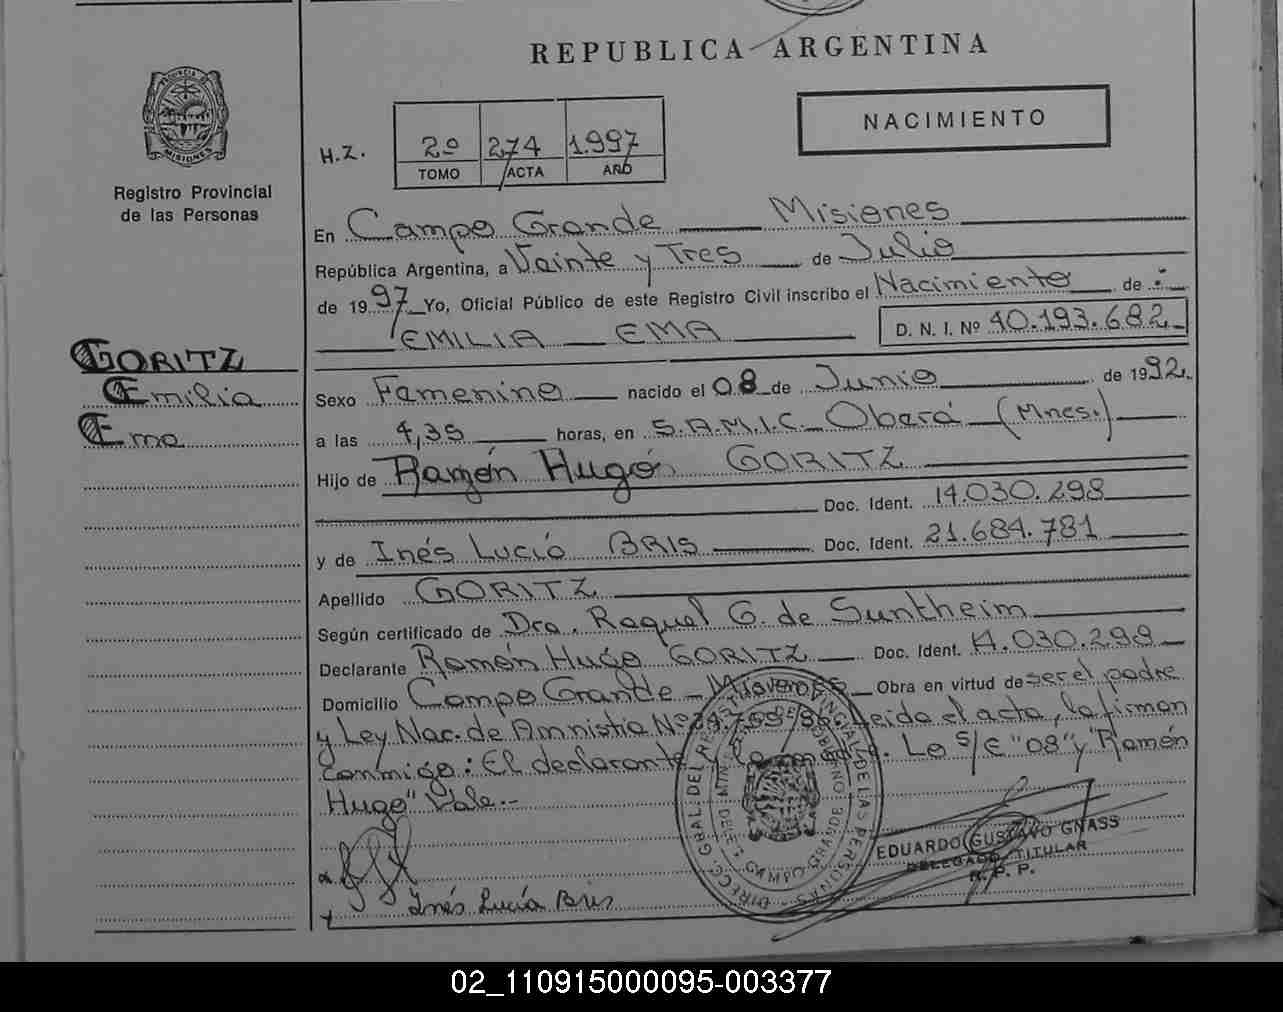 REPUBLICA ARGENTINA
NACIMIENTO
PROVINCIA DE
MISIONES
Registro Provincial
de las Personas
H.Z.
2º 274 1.997
TOMO ACTA AÑO
En Campo Grande Misiones
República Argentina, a Veinte y Tres de Julio
de 1997 Yo, Oficial Público de este Registro Civil inscribo el Nacimiento de :
EMILIA EMA D. N. I. Nº 40.193.682
GORITZ
Emilia
Ema
Sexo Femenino nacido el 08 de Junio de 1992.
a las 4,35 horas, en S.A.M.I.C. Oberá (Mnes.)
Hijo de Ramón Hugo GORITZ
Doc. Ident. 14.030.298
y de Inés Lucía BRIS Doc. Ident. 21.684.781
Apellido GORITZ
Según certificado de Dra. Raquel G. de Suntheim
Declarante Ramón Hugo GORITZ Doc. Ident. 14.030.298
Domicilio Campo Grande - Misiones Obra en virtud de ser el padre
y Ley Nac. de Amnistia Nº Leida el acta, la firman
conmigo: El declarante y la madre. Lo S/E "08" y "Ramón
Hugo" Vale.-
DIRECC. GRAL. DEL REGISTRO PROVINCIAL DE LAS PERSONAS
CAMPO GRANDE
EDUARDO GUSTAVO GNASS
DELEGADO TITULAR
R. P. P.
Inés Lucía Bris
02_110915000095-003377